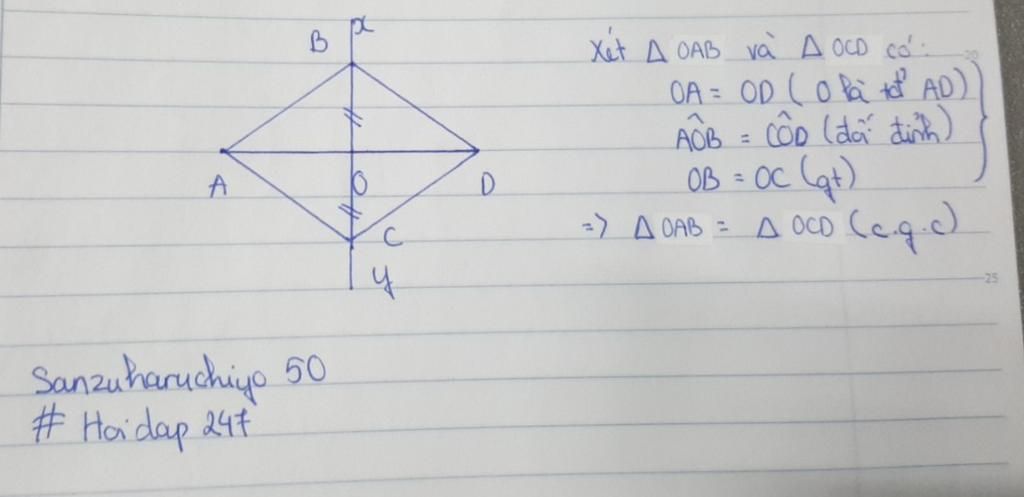 x
B
A
O
D
C
y
Xét Δ OAB và Δ OCD có:
OA = OD ( O là tđ AD)
AÔB = CÔD (đối đỉnh)
OB = OC (gt)
=> Δ OAB = Δ OCD (c.g.c)
25
Sanzuharuchiyo 50
# Hoidap 247